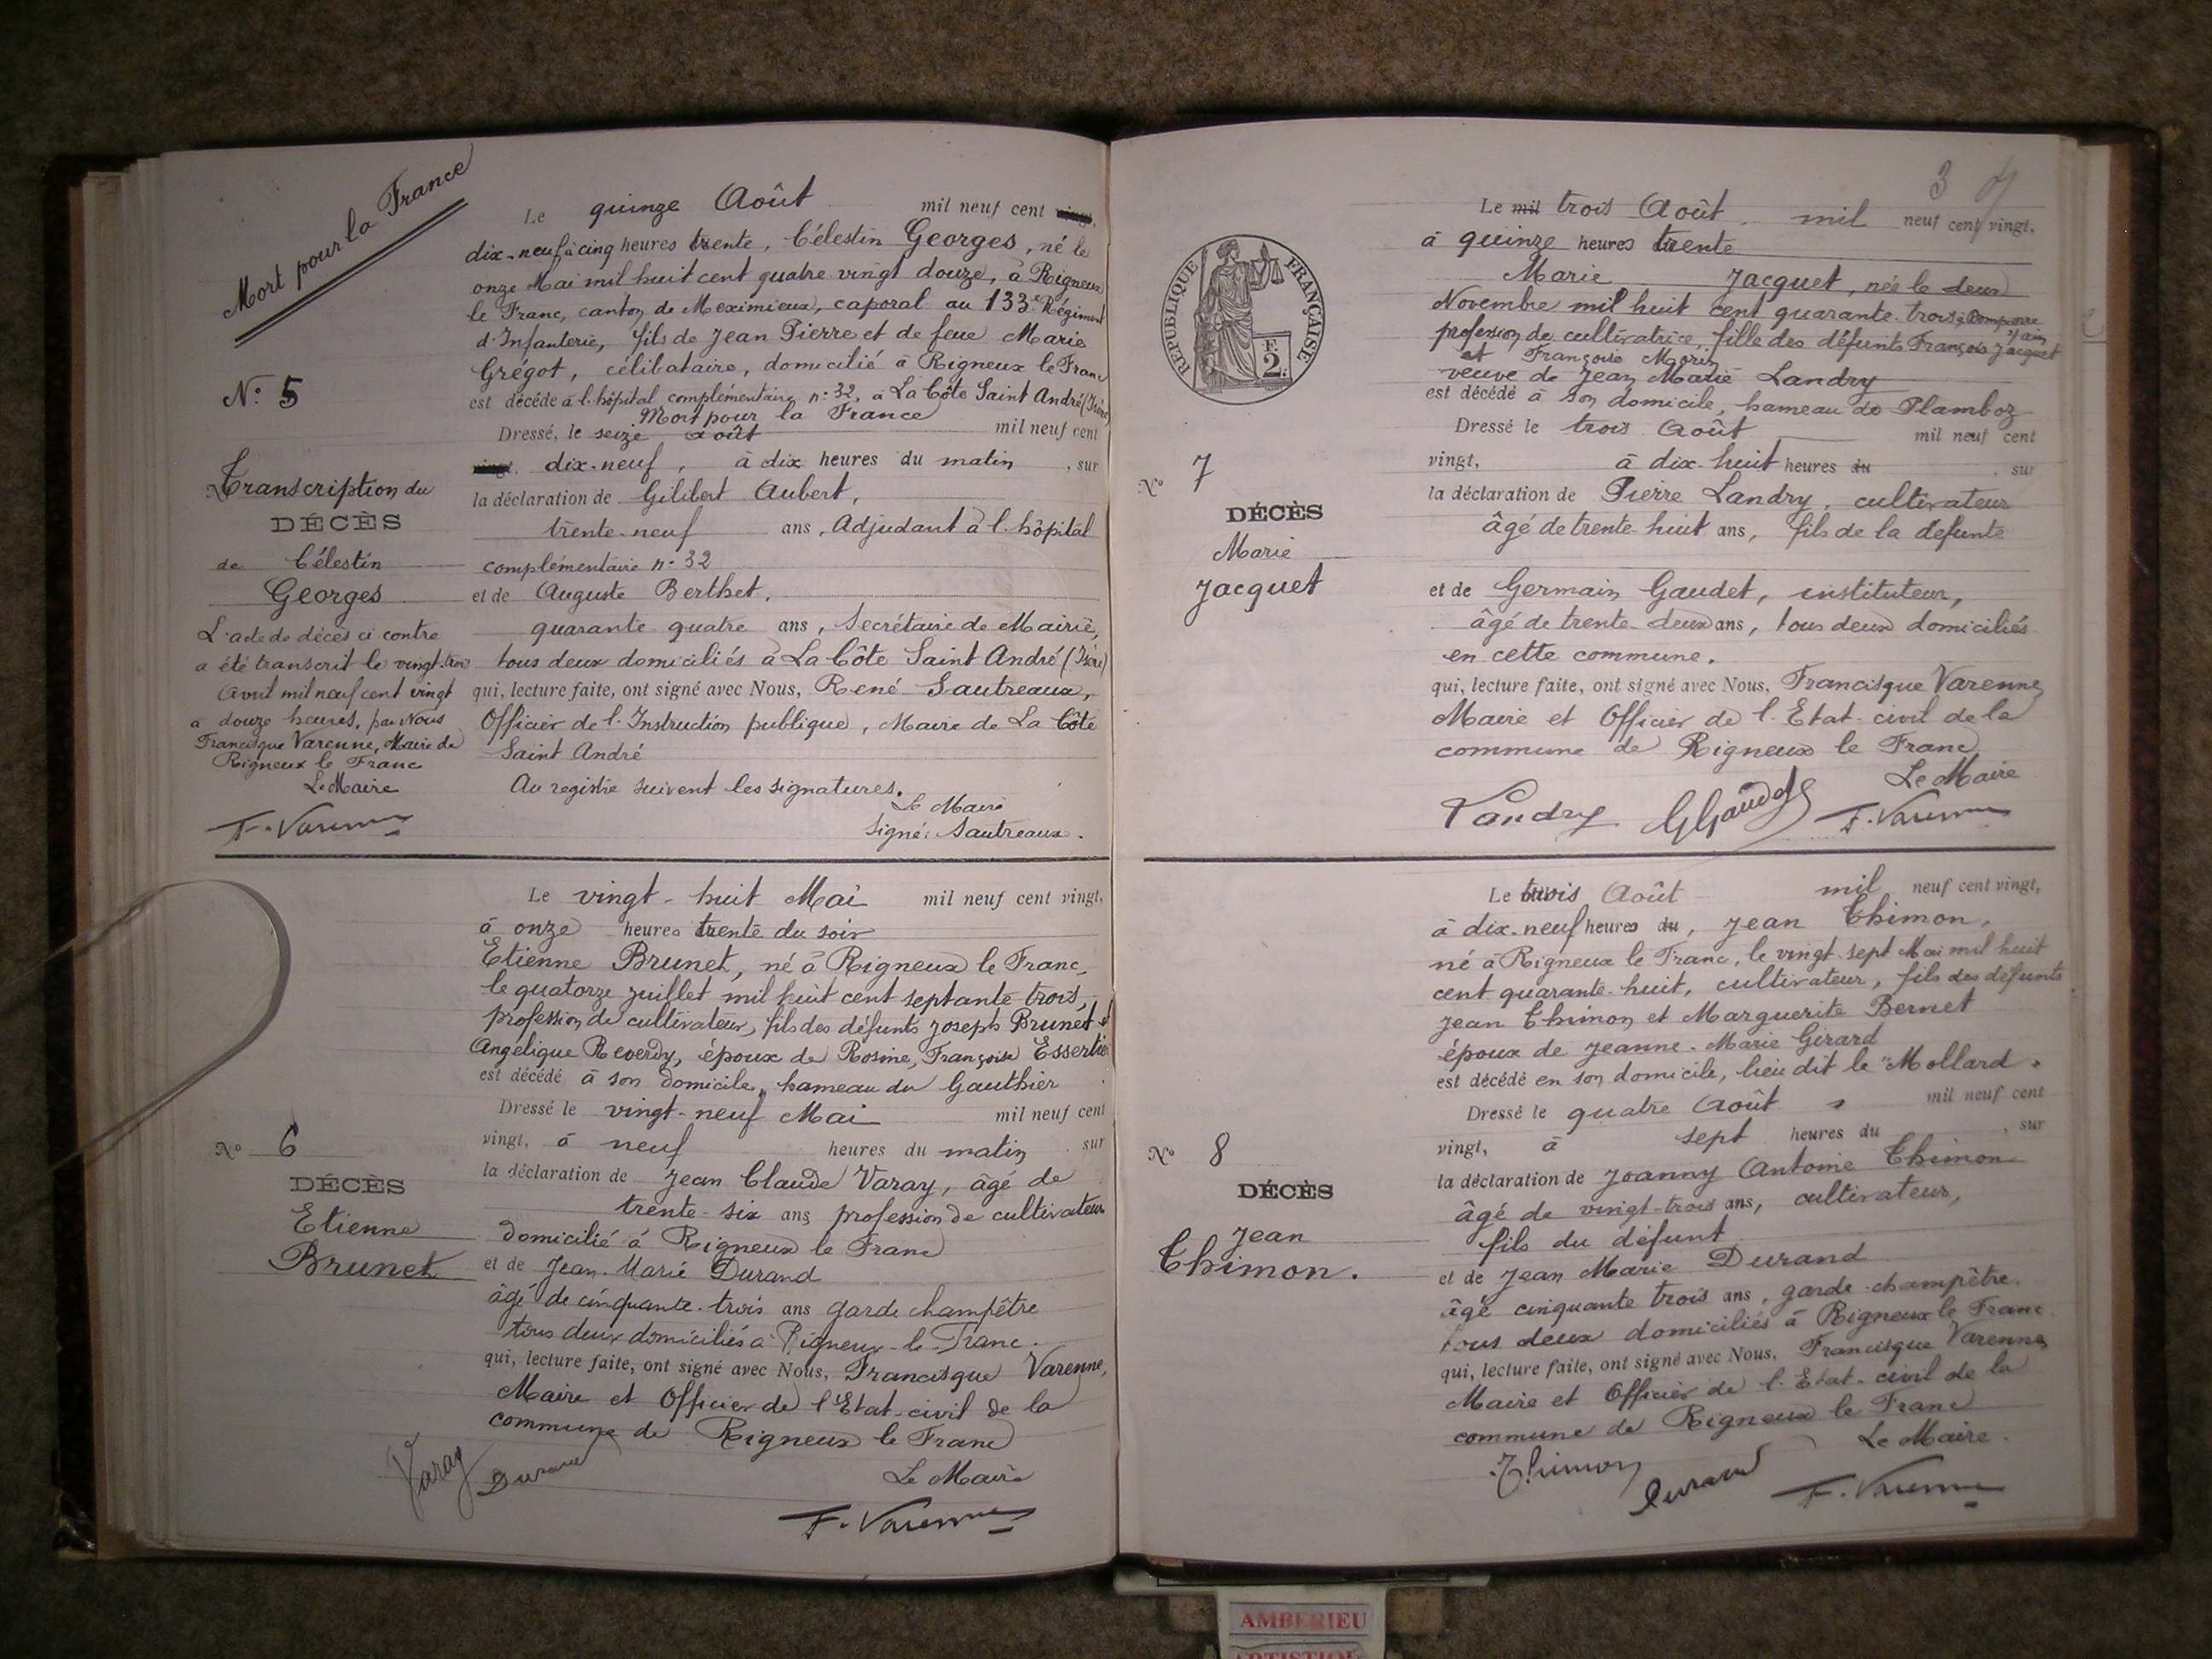 Mort pour la France
N° 5
Transcription du
DÉCÈS
de Célestin
Georges
L'acte de décès ci contre
a été transcrit le vingt-trois
Avril mil neuf cent vingt
à douze heures, par Nous
Francisque Varenne, Maire de
Rigneux le Franc
Le Maire
F. Varenne
Le quinze Août mil neuf cent vingt,
dix-neuf à cinq heures trente, Célestin Georges, né le
onze Mai mil huit cent quatre vingt douze, à Rigneux
le Franc, canton de Meximieux, caporal au 133e Régiment
d'Infanterie, fils de Jean Pierre et de feue Marie
Grégot, célibataire, domicilié à Rigneux le Franc
est décédé à l'hôpital complémentaire n° 32, à La Côte Saint André (Isère)
Mort pour la France
Dressé, le seize août mil neuf cent
vingt, dix-neuf, à dix heures du matin, sur
la déclaration de Gilibert Aubert,
trente-neuf ans, Adjudant à l'hôpital
complémentaire n° 32
et de Auguste Berthet,
quarante quatre ans, Secrétaire de Mairie,
tous deux domiciliés à La Côte Saint André (Isère)
qui, lecture faite, ont signé avec Nous, René Sautreaux,
Officier de l'Instruction publique, Maire de La Côte
Saint André
Au registre suivent les signatures.
Le Maire
Signé: Sautreaux.
N° 6
DÉCÈS
Etienne
Brunet
Le vingt-huit Mai mil neuf cent vingt,
à onze heures trente du soir
Etienne Brunet, né à Rigneux le Franc,
le quatorze juillet mil huit cent septante trois,
profession de cultivateur, fils des défunts Joseph Brunet et
Angélique Reverdy, époux de Rosine, Françoise Essertier
est décédé à son domicile, hameau du Gauthier
Dressé le vingt-neuf Mai mil neuf cent
vingt, à neuf heures du matin sur
la déclaration de Jean Claude Varay, âgé de
trente-six ans profession de cultivateur
domicilié à Rigneux le Franc
et de Jean-Marie Durand
âgé de cinquante-trois ans garde champêtre
tous deux domiciliés à Rigneux-le-Franc.
qui, lecture faite, ont signé avec Nous, Francisque Varenne,
Maire et Officier de l'Etat-civil de la
commune de Rigneux le Franc
Le Maire
Varay Durand
F. Varenne
3
REPUBLIQUE FRANÇAISE
2 F.
N° 7
DÉCÈS
Marie
Jacquet
Le mil trois Août mil neuf cent vingt,
à quinze heures trente
Marie Jacquet, née le deux
Novembre mil huit cent quarante-trois,
(Ain)
profession de cultivatrice, fille des défunts François Jacquet
et Françoise Morin
veuve de Jean Marie Landry
est décédé à son domicile, hameau de Plamboz
Dressé le trois Août mil neuf cent
vingt, à dix-huit heures du sur
la déclaration de Pierre Landry, cultivateur
âgé de trente-huit ans, fils de la défunte
et de Germain Gaudet, instituteur,
âgé de trente-deux ans, tous deux domiciliés
en cette commune.
qui, lecture faite, ont signé avec Nous, Francisque Varenne,
Maire et Officier de l'Etat-civil de la
commune de Rigneux le Franc
Le Maire
Landry G Gaudet F. Varenne
N° 8
DÉCÈS
Jean
Thimon.
Le trois Août mil neuf cent vingt,
à dix-neuf heures du, Jean Thimon,
né à Rigneux le Franc, le vingt-sept Mai mil huit
cent quarante-huit, cultivateur, fils des défunts
Jean Thimon et Marguerite Bernet
époux de Jeanne-Marie Girard
est décédé en son domicile, lieu dit le "Mollard.
Dressé le quatre Août mil neuf cent
vingt, à sept heures du, sur
la déclaration de Joanny Antoine Thimon
âgé de vingt-trois ans, cultivateur,
fils du défunt
et de Jean Marie Durand
âgé cinquante trois ans, garde-champêtre.
tous deux domiciliés à Rigneux le Franc
qui, lecture faite, ont signé avec Nous, Francisque Varenne,
Maire et Officier de l'Etat-civil de la
commune de Rigneux le Franc
Le Maire.
Thimon Durand F. Varenne
AMBERIEU